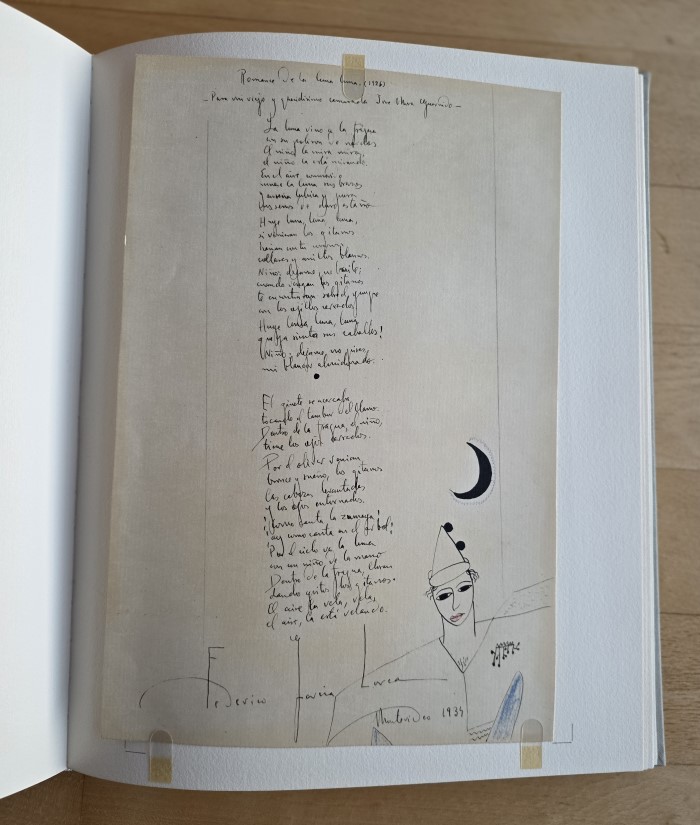 Romance de la luna luna. (1926)
– Para mi viejo y queridísimo camarada José Mora Guarnido –
La luna vino a la fragua
con su polisón de nardos
El niño la mira mira,
el niño la está mirando.
En el aire conmovido
mueve la luna sus brazos
y enseña lúbrica y pura
sus senos de duro estaño
Huye luna, luna, luna,
si vinieran los gitanos
harían con tu
collares y anillos blancos.
Niño dejame, no
cuando vengan los gitanos
te encontrarán sobre el yunque
con los ojillos cerrados
Huye luna, luna, luna
que ya siento sus caballos!
Niño, dejame, no pises,
mi blancor almidonado.
El jinete se acercaba
tocando el tambor del llano.
Dentro de la fragua, el niño,
tiene los ojos cerrados.
Por el olivar venían
bronce y sueño, los gitanos
las cabezas levantadas
y los ojos entornados.
¡Como canta la zumaya!
¡ay como canta en el árbol!
Por el cielo va la luna
con un niño de la mano
Dentro de la fragua, lloran
dando gritos los gitanos.
El aire la vela, vela,
el aire, la está velando.
Federico García Lorca
Montevideo 1934